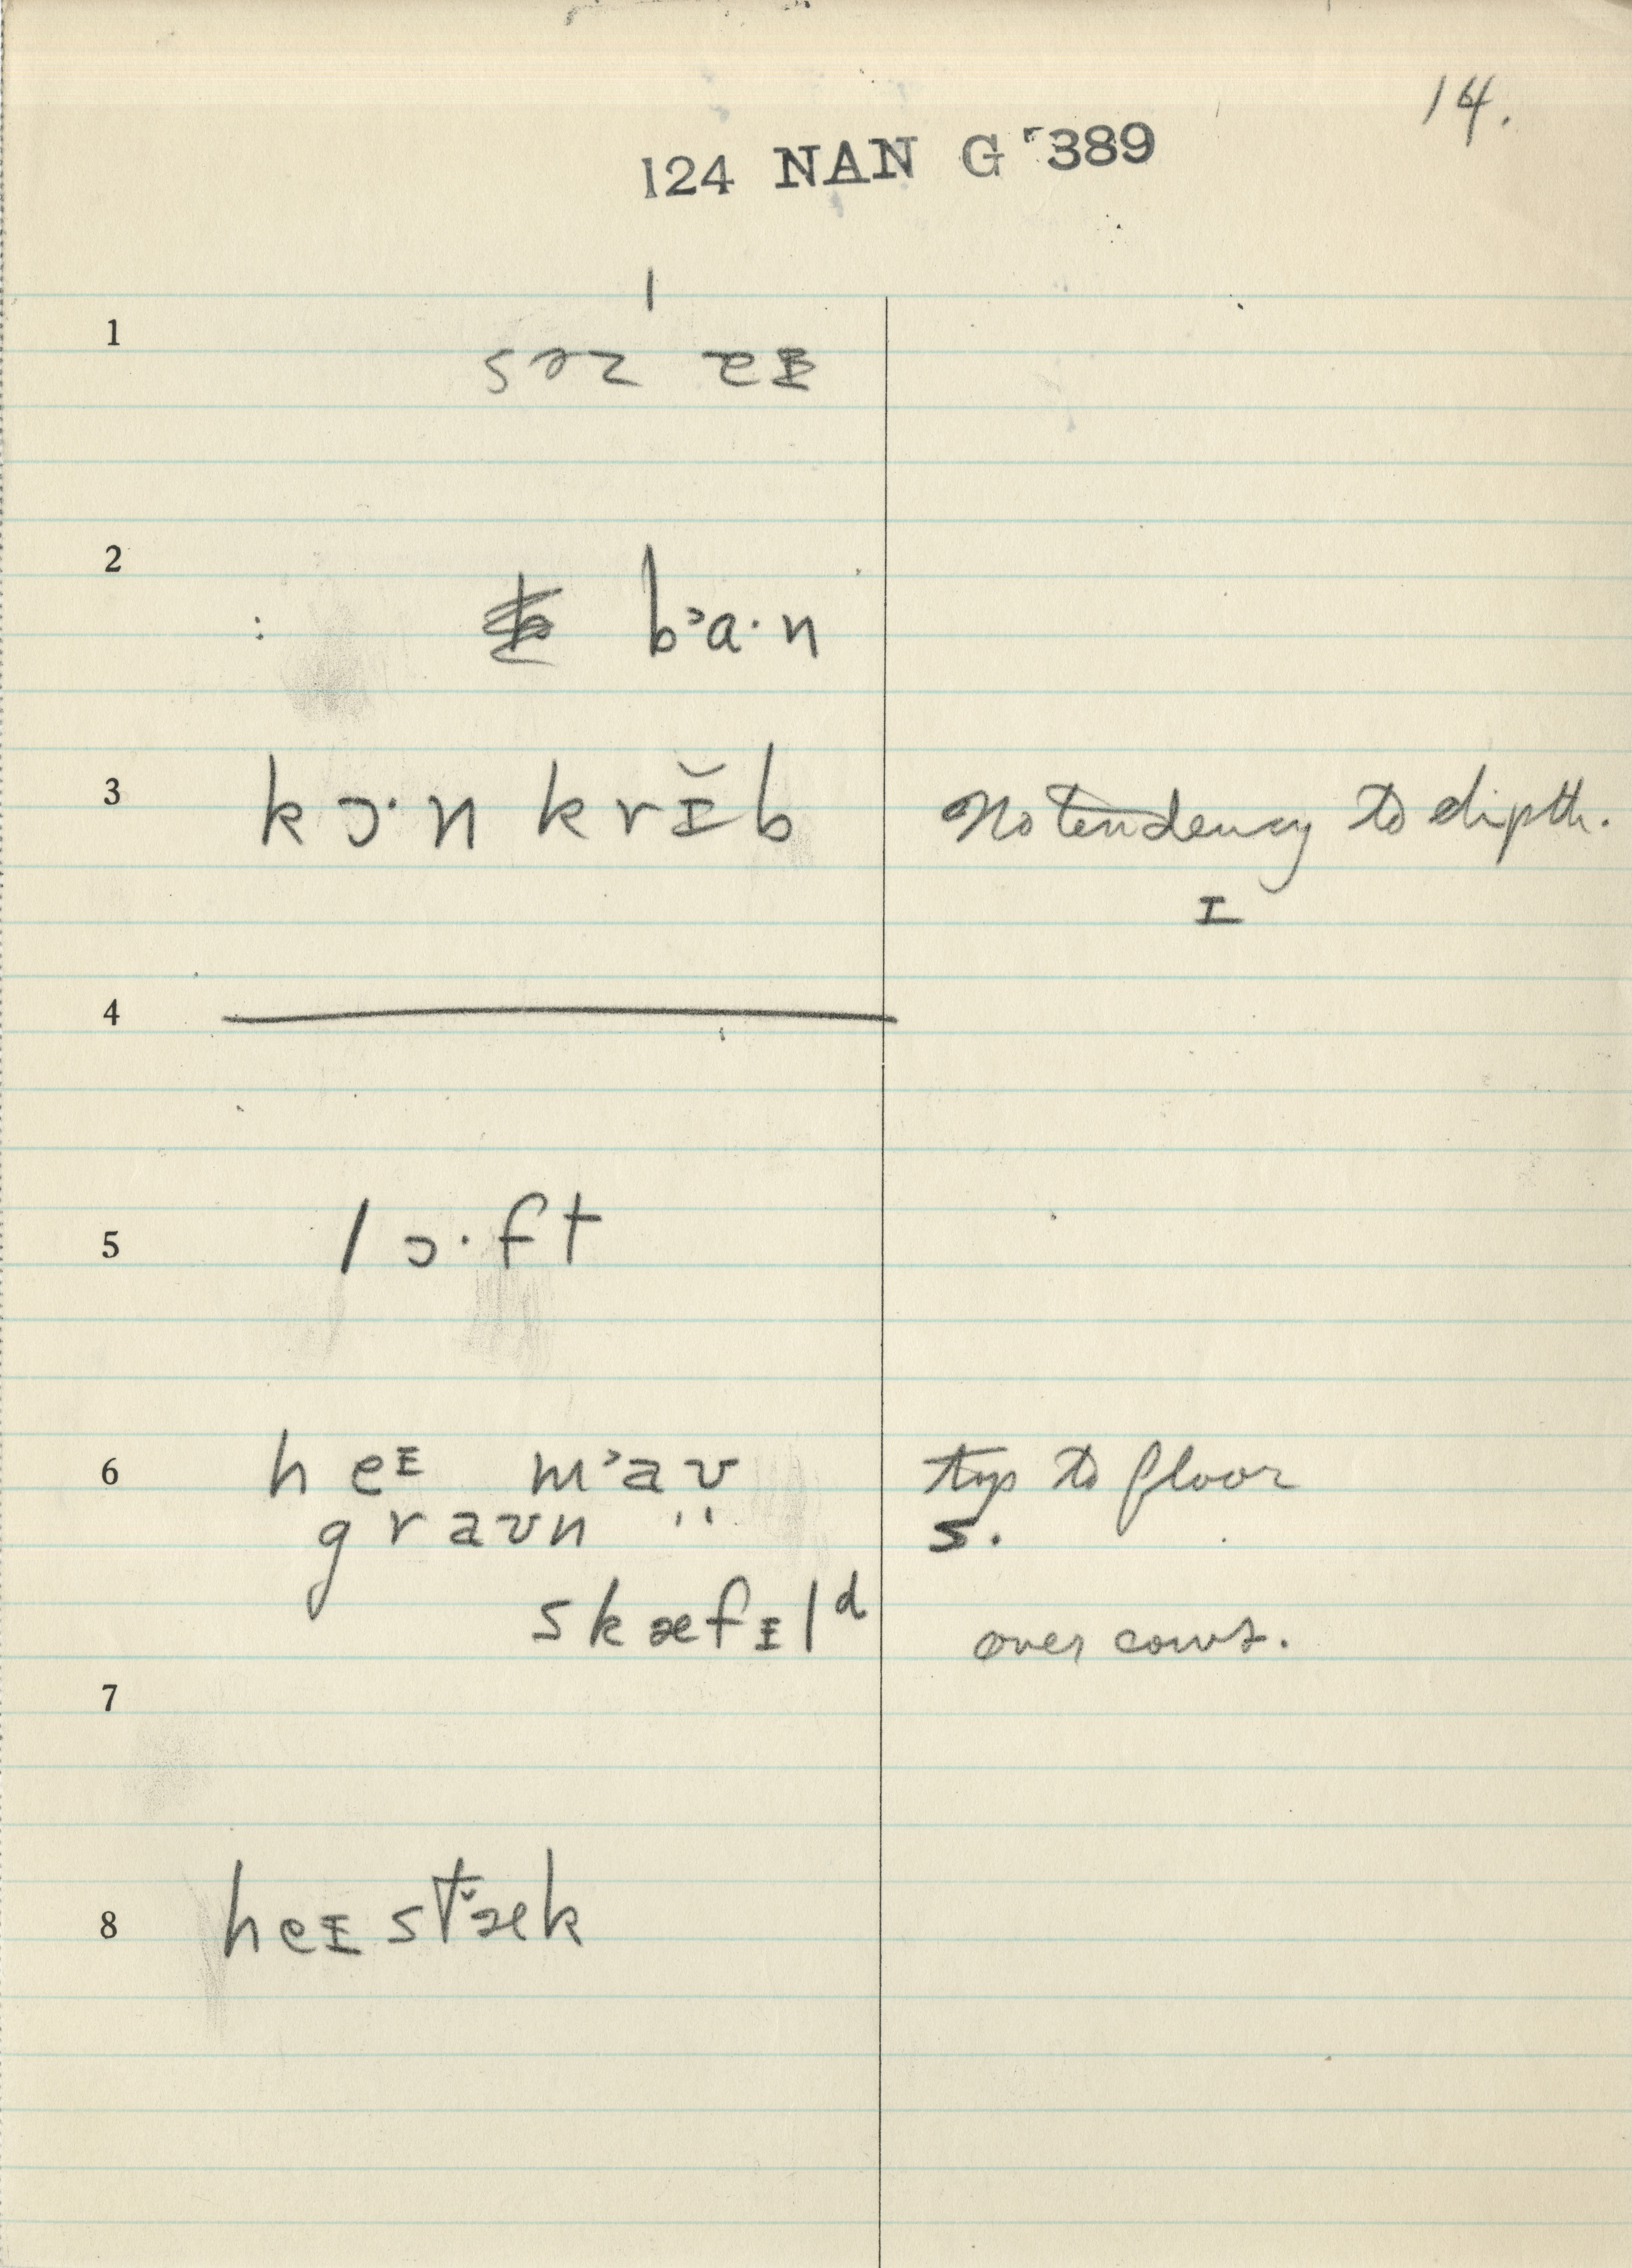 14.
124 NAN G 389
1
2
b ɔa·n
3 kɔ·n krɪ̆b No tendency to dipth.
ɪ
4
5 lɔ·ft
6 heɪ mɔaʊ top to floor
graʊn " s.
skæfɪlᵈ over cows.
7
8 heɪstæk